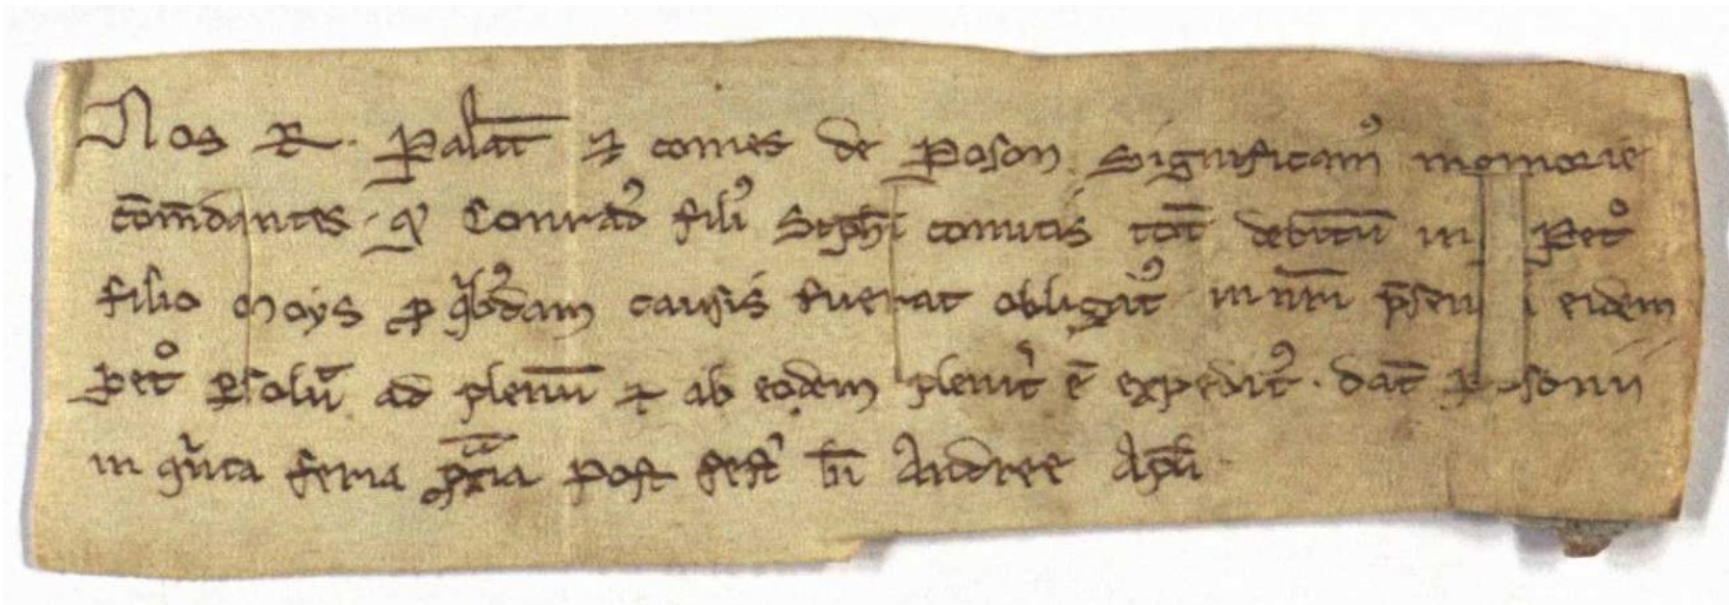 Nos R. Palat̅ ⁊ comes de Poson. Significam᷒ memorie
co̅me̅dantes. qͦ Conrad᷒ fili᷒ Steph̅i comitis tot̅ debitu̅ in Petͦ
filio Moys ꝓ qͥb᷒dam causis fuerat obligat᷒ in nr̅m p̅sen i eidem
Petͦ ꝑsolu̅ ad plenu̅ ⁊ ab eodem pleniť e̅ expedit᷒. dat̅ Posonii
in qͥnta feria ꝓxia̅ post fest᷒ b̅i Andree Apl̅i